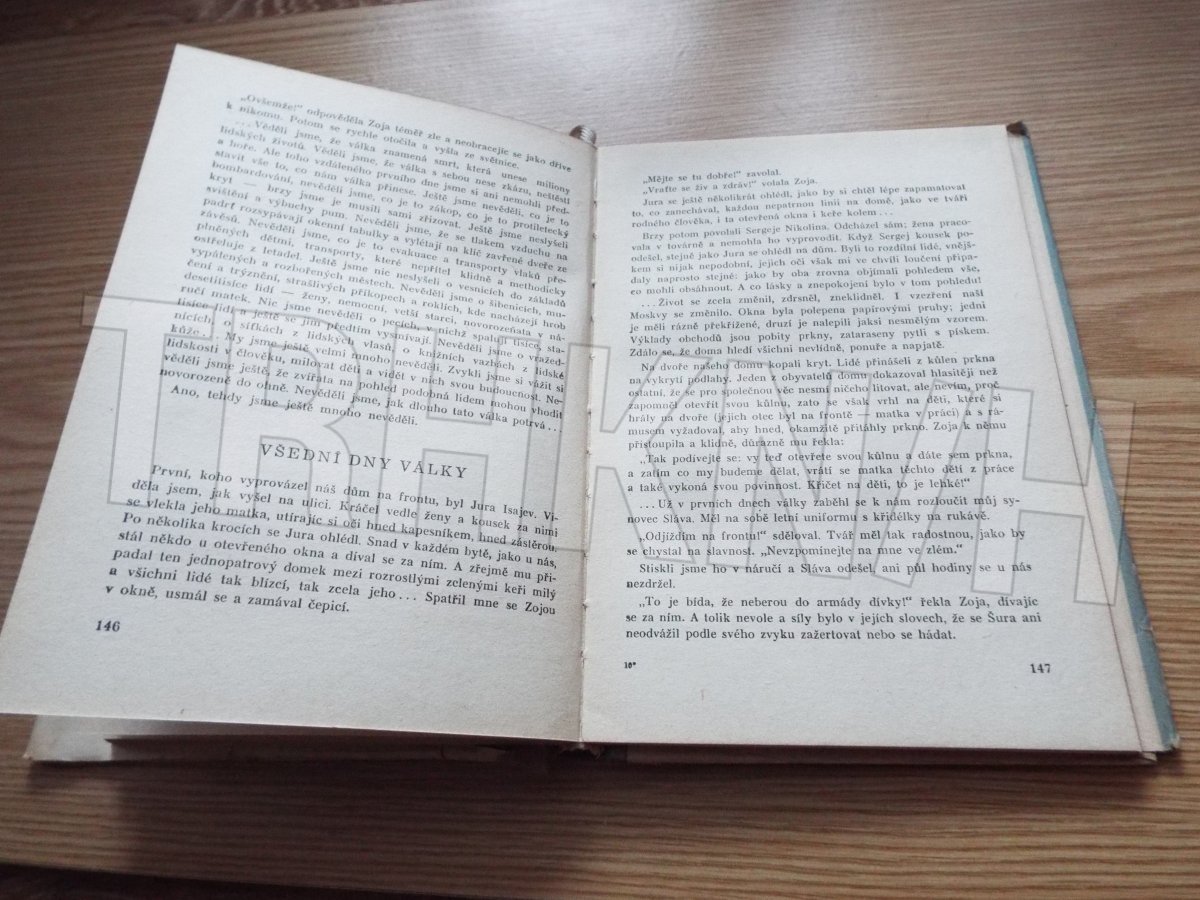 „Ovšemže!" odpověděla Zoja téměř zle a neobracejíc se jako dříve
k nikomu. Potom se rychle otočila a vyšla ze světnice.
...Věděli jsme, že válka znamená smrt, která unese miliony
lidských životů. Věděli jsme, že válka s sebou nese zkázu, neštěstí
a hoře. Ale toho vzdáleného prvního dne jsme si ani nemohli před-
stavit vše to, co nám válka přinese. Ještě jsme nevěděli, co je to
bombardování, nevěděli jsme, co je to zákop, co je to protiletecký
kryt — brzy jsme je musili sami zřizovat. Ještě jsme neslyšeli
svištění a výbuchy pum. Nevěděli jsme, že se tlakem vzduchu na
padrť rozsypávají okenní tabulky a vylétají na klíč zavřené dveře ze
závěsů. Nevěděli jsme, co je to evakuace a transporty vlaků pře-
plněných dětmi, transporty, které nepřítel klidně a methodicky
ostřeluje z letadel. Ještě jsme nic neslyšeli o vesnicích do základů
vypálených a rozbořených městech. Nevěděli jsme o šibenicích, mu-
čení a trýznění, strašlivých příkopech a roklích, kde nacházejí hrob
desetitisíce lidí — ženy, nemocní, vetší starci, novorozeňata v ná-
ručí matek. Nic jsme nevěděli o pecích, v nichž spalují tisíce, sta-
tisíce lidí a ještě se jim předtím vysmívají. Nevěděli jsme o vražed-
nicích, o síťkách z lidských vlasů, o knižních vazbách z lidské
kůže... My jsme ještě velmi mnoho nevěděli. Zvykli jsme si vážit si
lidskosti v člověku, milovat děti a vidět v nich svou budoucnost. Ne-
věděli jsme ještě, že zvířata na pohled podobná lidem mohou vhodit
novorozeně do ohně. Nevěděli jsme, jak dlouho tato válka potrvá...
Ano, tehdy jsme ještě mnoho nevěděli.
VŠEDNÍ DNY VÁLKY
První, koho vyprovázel náš dům na frontu, byl Jura Isajev. Vi-
děla jsem, jak vyšel na ulici. Kráčel vedle ženy a kousek za nimi
se vlekla jeho matka, utírajíc si oči hned kapesníkem, hned zástěrou.
Po několika krocích se Jura ohlédl. Snad v každém bytě, jako u nás,
stál někdo u otevřeného okna a díval se za ním. A zřejmě mu při-
padal ten jednopatrový domek mezi rozrostlými zelenými keři milý
a všichni lidé tak blízcí, tak zcela jeho... Spatřil mne se Zojou
v okně, usmál se a zamával čepicí.
146
„Mějte se tu dobře!" zavolal.
„Vraťte se živ a zdráv!" volala Zoja.
Jura se ještě několikrát ohlédl, jako by si chtěl lépe zapamatovat
to, co zanechával, každou nepatrnou linii na domě, jako ve tváři
rodného člověka, i ta otevřená okna i keře kolem...
Brzy potom povolali Sergeje Nikolina. Odcházel sám; žena praco-
vala v továrně a nemohla ho vyprovodit. Když Sergej kousek po-
odešel, stejně jako Jura se ohlédl na dům. Byli to rozdílní lidé, vnějš-
kem si nijak nepodobní, jejich oči však mi ve chvíli loučení připa-
daly naprosto stejné: jako by oba zrovna objímali pohledem vše,
co mohli obsáhnout. A co lásky a znepokojení bylo v tom pohledu!
...Život se zcela změnil, zdrsněl, zneklidněl. I vzezření naší
Moskvy se změnilo. Okna byla polepena papírovými pruhy; jedni
je měli rázně překřížené, druzí je nalepili jaksi nesmělým vzorem.
Výklady obchodů jsou pobity prkny, zataraseny pytli s pískem.
Zdálo se, že doma hledí všichni nevlídně, ponuře a napjatě.
Na dvoře našeho domu kopali kryt. Lidé přinášeli z kůlen prkna
na vykrytí podlahy. Jeden z obyvatelů domu dokazoval hlasitěji než
ostatní, že se pro společnou věc nesmí ničeho litovat, ale nevím, proč
zapomněl otevřít svou kůlnu, zato se však vrhl na děti, které si
hrály na dvoře (jejich otec byl na frontě — matka v práci) a s rá-
musem vyžadoval, aby hned, okamžitě přitáhly prkno. Zoja k němu
přistoupila a klidně, důrazně mu řekla:
„Tak podívejte se: vy teď otevřete svou kůlnu a dáte sem prkna,
a zatím co my budeme dělat, vrátí se matka těchto dětí z práce
a také vykoná svou povinnost. Křičet na děti, to je lehké!"
...Už v prvních dnech války zaběhl se k nám rozloučit můj sy-
novec Sláva. Měl na sobě letní uniformu s křidélky na rukávě.
„Odjíždím na frontu!" sděloval. Tvář měl tak radostnou, jako by
se chystal na slavnost. „Nevzpomínejte na mne ve zlém."
Stiskli jsme ho v náručí a Sláva odešel, ani půl hodiny se u nás
nezdržel.
„To je bída, že neberou do armády dívky!" řekla Zoja, dívajíc
se za ním. A tolik nevole a síly bylo v jejích slovech, že se Šura ani
neodvážil podle svého zvyku zažertovat nebo se hádat.
10*
147
TRHKNIH